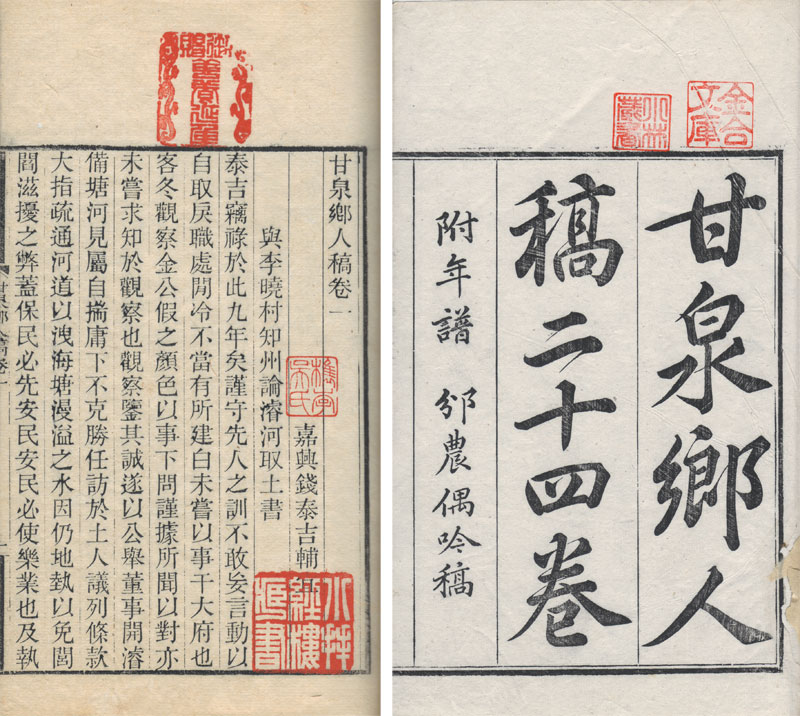 金合
文庫
甘泉鄉人
稿二十四卷
附年譜 邠農偶吟稿
甘泉鄉人稿卷一
嘉興錢泰吉輔
與李曉村知州論濬河取土書
泰吉竊祿於此九年矣謹守先人之訓不敢妄言動以
自取戾職處閒冷不當有所建白未嘗以事干大府也
客冬觀察金公假之顏色以事下問謹據所聞以對亦
未嘗求知於觀察也觀察鑒其誠遂以公舉董事開濬
備塘河見屬自揣庸下不克勝任訪於土人議列條款
大指疏通河道以洩海塘漫溢之水因仍地埶以免閭
閻滋擾之弊蓋保民必先安民安民必使樂業也及執